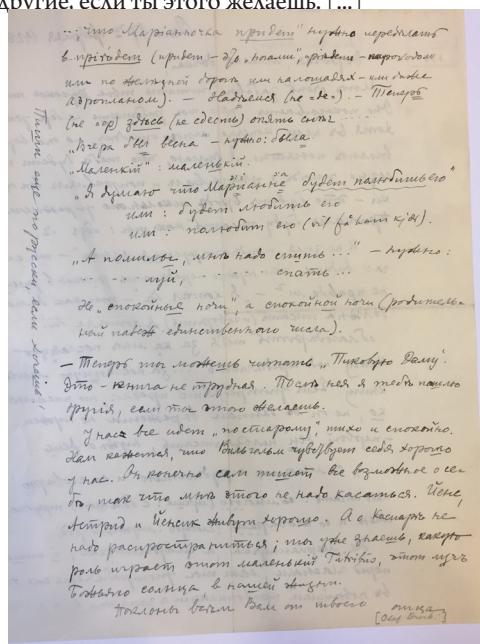 другие, если ты этого желаешь. [...]
... что Маріанночка придет" нужно передѣлать
в пріѣдет (придет – это „ногами", пріѣдет – пароходом
или по желѣзной дорогѣ или на лошадях – или даже
аэропланом). – Надѣемся (не -де-). – Теперь
(не -ер) здѣсь (не сдесть) опять снѣг
„Вчера был весна" – нужно: была
„Маленкій": маленькій.
„Я думаю что Маріанне будет полюбишь его"
или: будет любить его
или: полюбит его (vil få ham kjær).
„А помилы, мнѣ надо спить ..." – нужно:
луй, спать ...
Не „спокойные ночи", а спокойной ночи (родитель-
ный падеж единственного числа).
– Теперь ты можешь читать „Пиковую Даму".
Это – книга не трудная. Послѣ нея я тебѣ пошлю
другія, если ты этого желаешь.
У нас все идет „постарому", тихо и спокойно.
Нам кажется, что Вильгельм чувствует себя хорошо
у нас. Он конечно сам пишет все возможное о се-
бѣ, так что мнѣ этого не надо касаться. Йенс,
Астрид и Йенсик живут хорошо. А о Каспарѣ не
надо распространиться; ты уже знаешь, какую
роль играет этот маленькій Titribis, этот луч
Божьяго солнца, в нашей жизни.
Поклоны всѣм Вам от твоего отца
[Olaf Broch.]
Пиши еще по русски, если хочешь!